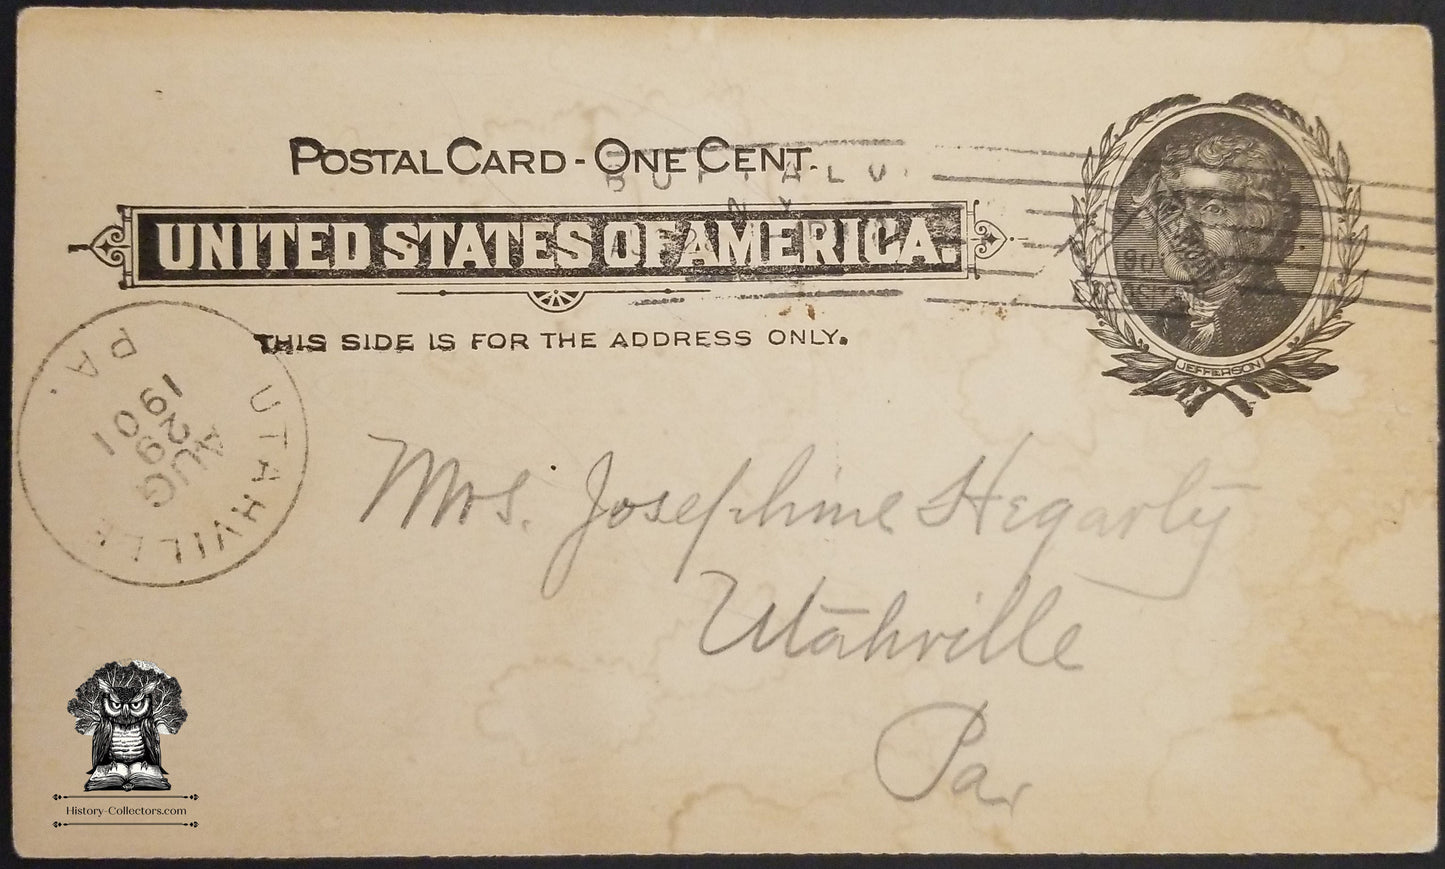 POSTAL CARD - ONE CENT.
BUFFALO
N Y
UNITED STATES OF AMERICA.
THIS SIDE IS FOR THE ADDRESS ONLY.
JEFFERSON
UTAHVILLE
PA.
AUG
29
1901
Mrs. Josephine Hegarty
Utahville
Pa.
History-Collectors.com